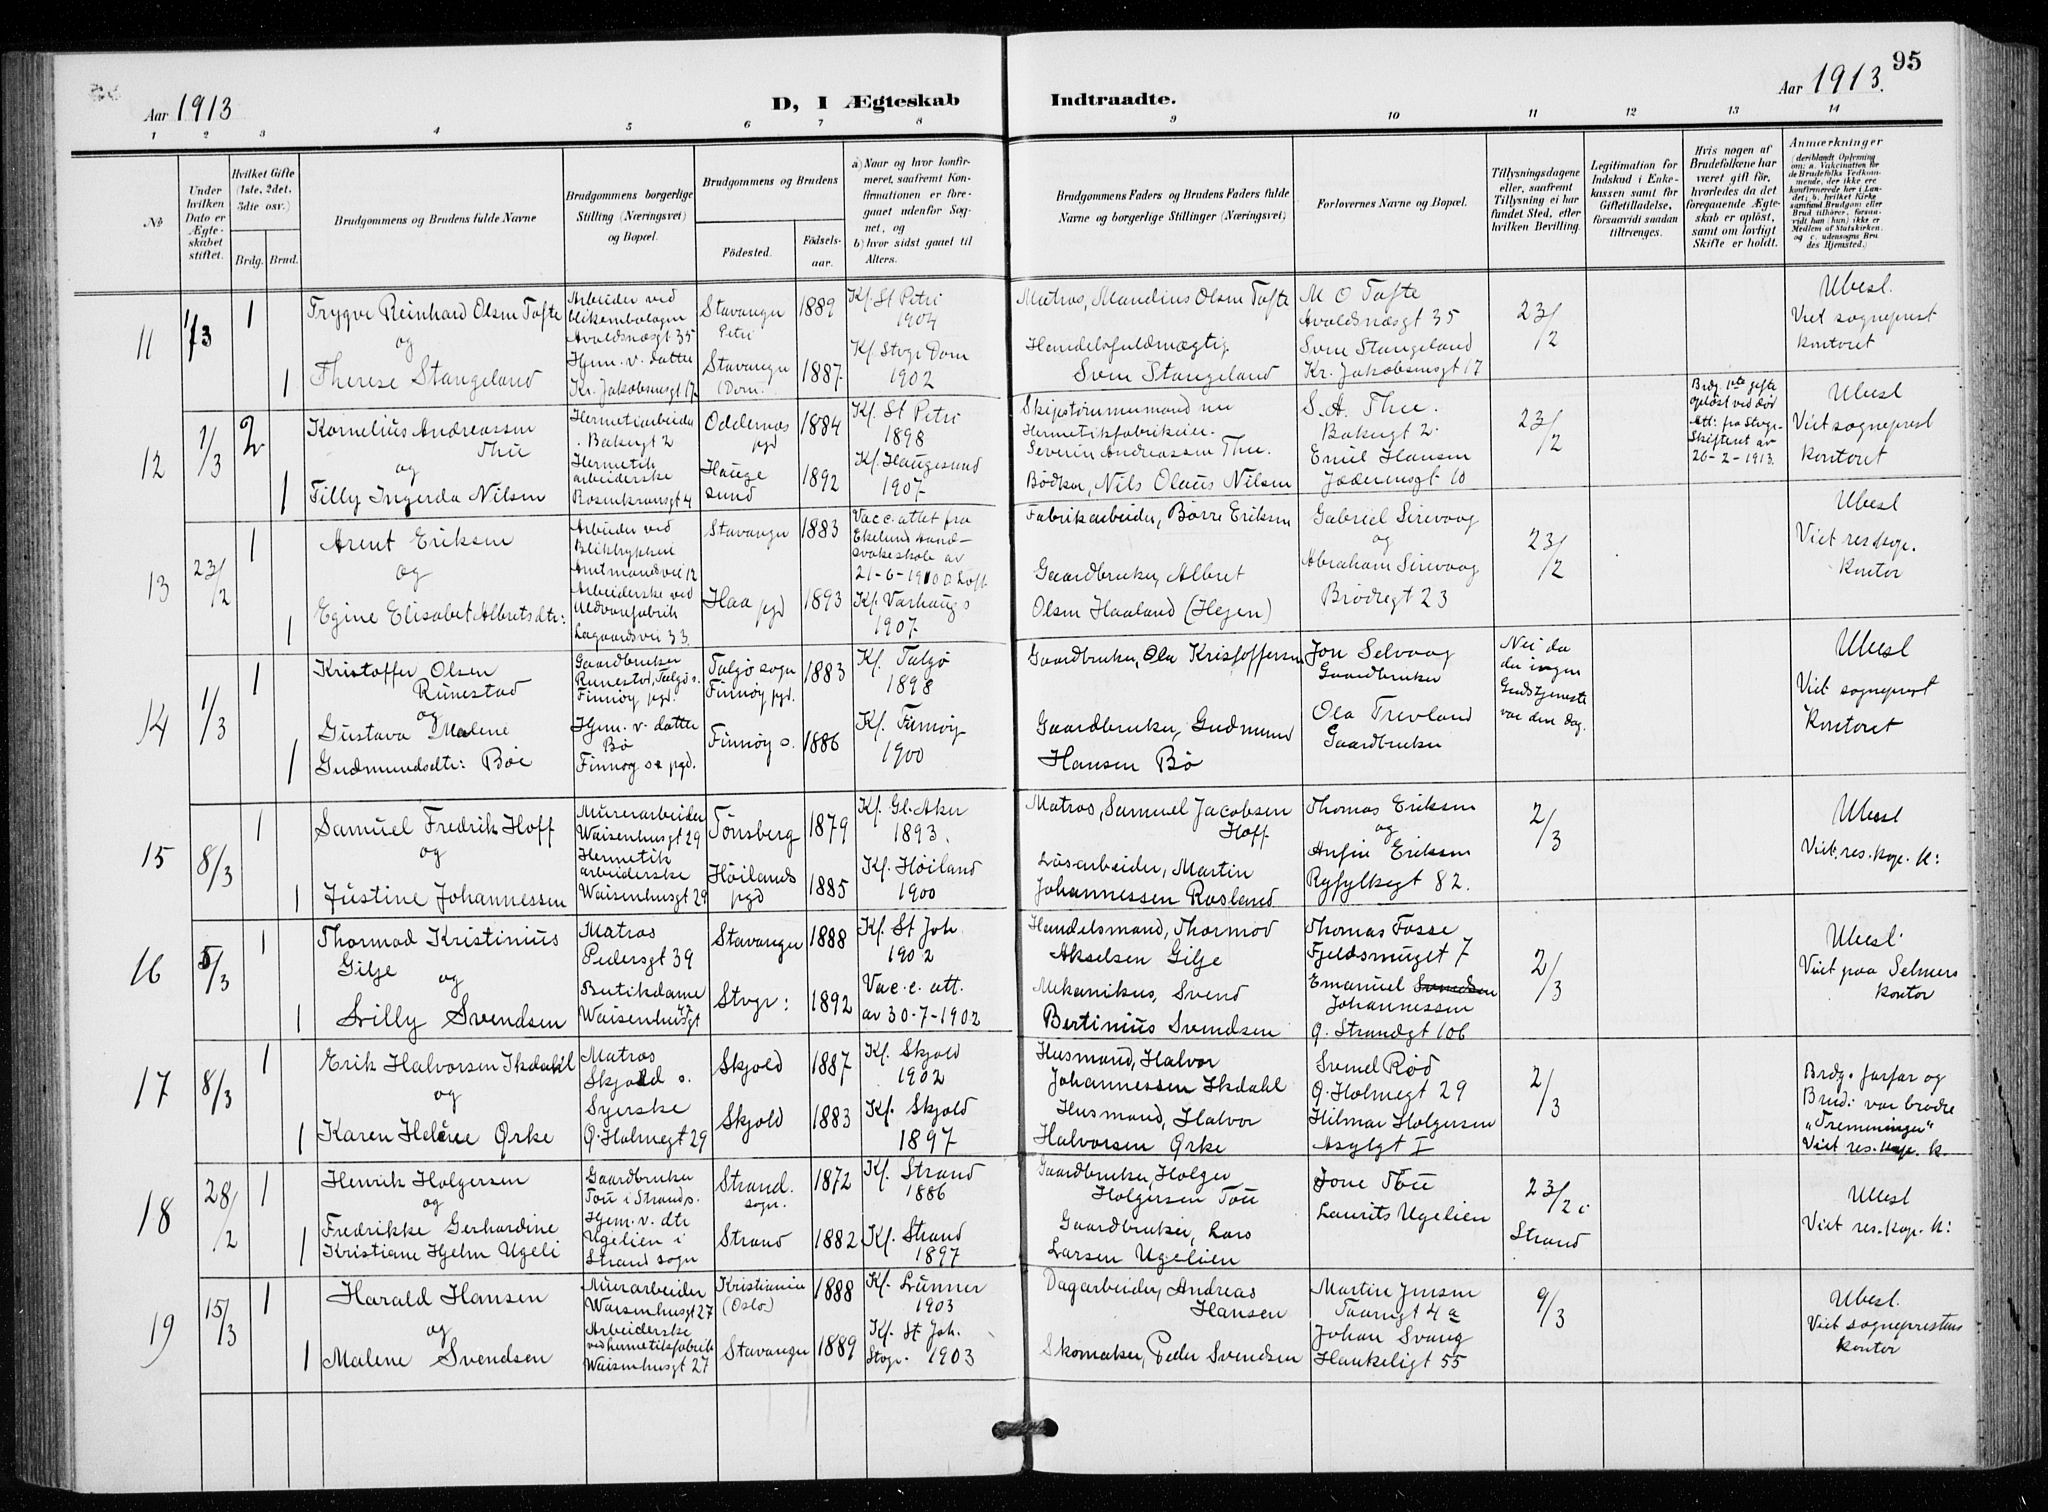 95
Aar 1913
D, I Ægteskab Indtraadte.
Aar 1913.
1 2 3 4 5 6 7 8 9 10 11 12 13 14
No
Under hvilken Dato er Ægteskabet stiftet.
Hvilket Gifte (1ste, 2det, 3die osv.)
Brdg. Brud.
Brudgommens og Brudens fulde Navne
Brudgommens borgerlige Stilling (Næringsvei) og Bopæl.
Brudgommens og Brudens
Födested.
Födsels-aar.
a) Naar og hvor konfirmeret, saafremt Konfirmationen er foregaaet udenfor Sognet, og
b) hvor sidst gaaet til Alters.
Brudgommens Faders og Brudens Faders fulde Navne og borgerlige Stillinger (Næringsvei)
Forlovernes Navne og Bopæl.
Tillysningsdagene eller, saafremt Tillysning ei har fundet Sted, efter hvilken Bevilling.
Legitimation for Indskud i Enkekassen samt for Giftetilladelse, forsaavidt saadan tiltrænges.
Hvis nogen af Brudefolkene har været gift för, hvorledes da det foregaaende Ægteskab er oplöst, samt om lovligt Skifte er holdt.
Anmærkninger
(deriblandt Oplysning om: a. Vakcination for de Brudefolks Vedkommende, der ikke ere konfirmerede her i Landet; b. hvilket Kirkesamfund Brudgom eller Brud tilhörer, forsaavidt han (hun) ikke er Medlem af Statskirken, og c. udensogns Brudes Hjemsted.)
11
1/3
1
Trygve Reinhard Olsen Tofte
og
1
Therese Stangeland
Arbeider ved
Avaldsnæsgt 35
Hjem. v. datter
Kr. Jakobsensgt 17
Stavanger
Petri
1889
Stavanger
Dom.
1887
Kf. St Petri
1904
Kf. Stvgr Dom
1902
Matros, Mandius Olsen Tofte
Handelsfuldmægtig
Sven Stangeland
M O Tofte
Avaldsnæsgt 35
Sven Stangeland
Kr. Jakobsensgt 17
23/2
Ubesl.
Viet sogneprest
kontoret
12
1/3
2
Kornelius Andreassen
Thu
og
1
Tilly Ingerda Nilsen
Hermetiarbeider
Bakergt 2
Hermetik
arbeiderske
Rosenkransgt 4
Oddernes
pgd
1884
Hauge
sund
1892
Kf. St Petri
1898
Kf. Haugesund
1907
Skibstømmermand nu
Hermetikfabrikeier
Severin Andreassen Thu.
Bødker, Nils Olaus Nilsen
S. A. Thu.
Bakergt 2.
Emil Hansen
Jæderensgt 10
23/2
Brdg. 1ste gifte
opløst ved død
Att: fra Stvgr
Skifteret av
26-2-1913.
Ubesl
Viet sogneprest
kontoret
13
23/2
1
Arent Eriksen
og
1
Egine Elisabet Albretsdtr:
Arbeider ved
Bliktrykkeri
Amtmandvei 12
Arbeiderske ved
Uldvarefabrik
Lagaardsvei 33.
Stavanger
1883
Haa
pgd
1893
Vacc. attet fra
Ekelund aand-
svakeskole av
21-6-1910
Kf. Varhaug s
1907
Fabrikarbeider, Børre Eriksen
Gaardbruker, Albret
Olsen Haaland (Hegen)
Gabriel Sirevaag
og
Abraham Sirevaag
Brødregt 23
23/2
Ubesl
Viet res. kap.
kontor
14
1/3
1
Kristoffer Olsen
Runestad
og
1
Gustava Malene
Gudmundsdtr: Bøe
Gaardbruker
Runestad, Talgø s.
Finnøy pgd.
Hjem. v. datter
Bø
Finnøy s. pgd.
Talgø sogn
Finnøy pgd.
1883
Finnøy s.
1886
Kf. Talgø
1898
Kf. Finnøy
1900
Gaardbruker, Ola Kristoffersen
Gaardbruker, Gudmund
Hansen Bø
Jon Selvaag
Gaardbruker
Ola Trevland
Gaardbruker
Nei da
der ingen
Gudstjeneste
var den dag.
Ubesl
Viet sogneprest
kontoret
15
8/3
1
Samuel Fredrik Hoff
og
1
Justine Johannessen
Murerarbeider
Waisenhusgt 29
Hermetik
arbeiderske
Waisenhusgt 29
Tønsberg
1879
Høilands
pgd
1885
Kf. Gl. Aker
1893.
Kf. Høiland
1900
Matros, Samuel Jacobsen
Hoff
Løsarbeider, Martin
Johannessen Rosland
Thomas Eriksen
og
Anfin Eriksen
Ryfylkegt 82.
2/3
Ubesl
Viet. res. kap. k:
16
5/3
1
Thormod Kristinius
Gilje
og
1
Lilly Svendsen
Matros
Pedersgt 39
Butikdame
Waisenhusgt
Stavanger
1888
Stvgr:
1892
Kf. St Joh.
1902
Vacc. att.
av 30-7-1902
Handelsmand, Thormod
Akselsen Gilje
Mekanikus, Svend
Bertinius Svendsen
Thomas Fosse
Fjeldsmuget 7
Emanuel Svendsen
Johannessen
Ø. Strandgt 106
2/3
Ubesl.
Viet paa Selmers
kontor
17
8/3
1
Erik Halvorsen Ikdahl
og
1
Karen Helene Ørke
Matros
Skjold s.
Syerske
Ø. Holmegt 29
Skjold
1887
Skjold
1883
Kf. Skjold
1902
Kf. Skjold
1897
Husmand, Halvor
Johannessen Ikdahl
Husmand, Halvor
Halvorsen Ørke
Svend Rød
Ø. Holmegt 29
Hilmar Holgersen
Asylgt I
2/3
Brdg. farfar og
Brud: var brødre
"Tremeninger"
Viet res. kap. k.
18
28/2
1
Henrik Holgersen
og
1
Fredrikke Gerhardine
Kristiane Hjelm Ugeli
Gaardbruker
Tou i Strand s.
Hjem. v. dtr
Ugelien i
Strand sogn
Strand
sogn.
1872
Strand
1882
Kf. Strand
1886
Kf. Strand
1897
Gaardbruker, Holger
Holgersen Tou
Gaardbruker, Lars
Larsen Ugelien
Jone Tou
Laurits Ugelien
23/2 i
Strand
Ubesl
Viet res. kap. k:
19
15/3
1
Harald Hansen
og
1
Malene Svendsen
Murarbeider
Waisenhusgt 27
Arbeiderske
ved hermetikfabrik
Waisenhusgt 27
Kristiania
(Oslo)
1888
Stavanger
1889
Kf. Lunner
1903
Kf. St Joh.
Stvgr. 1903
Dagarbeider, Andreas
Hansen
Skomaker, Peder Svendsen
Martin Jensen
Taarngt 4a
Johan Svang
Haukeligt 55
9/3
Ubesl.
Viet sogneprestens
kontor